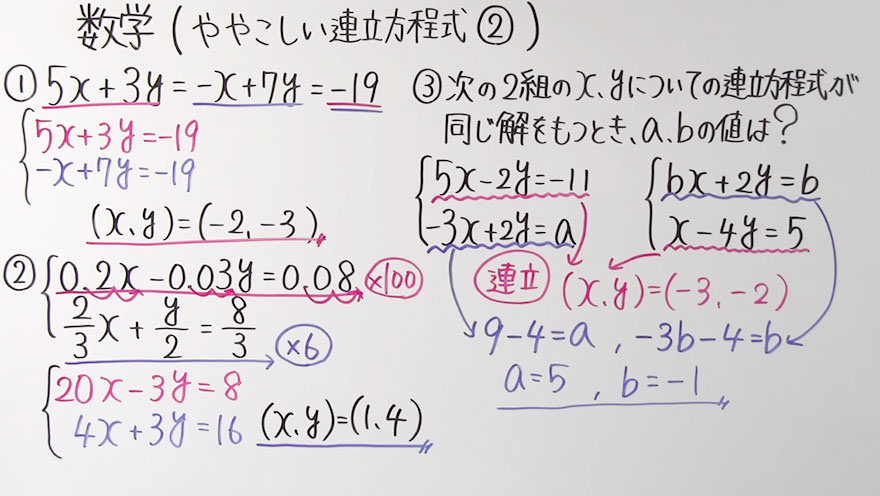 数学(ややこしい連立方程式②)
① 5x+3y=-x+7y=-19
5x+3y=-19
-x+7y=-19
(x、y)=(-2、-3)
② 0.2x-0.03y=0.08 ×100
2/3x+y/2=8/3
×6
20x-3y=8
4x+3y=16 (x、y)=(1、4)
③次の2組のx、yについての連立方程式が
同じ解をもつとき、a、bの値は?
5x-2y=-11
-3x+2y=a
bx+2y=b
x-4y=5
連立 (x、y)=(-3、-2)
9-4=a , -3b-4=b
a=5 , b=-1